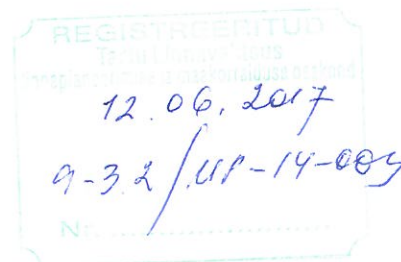 REGISTREERITUD
Tartu Linnavalitsus
12.06.2017
9-3.2/UP-14-004
Nr.